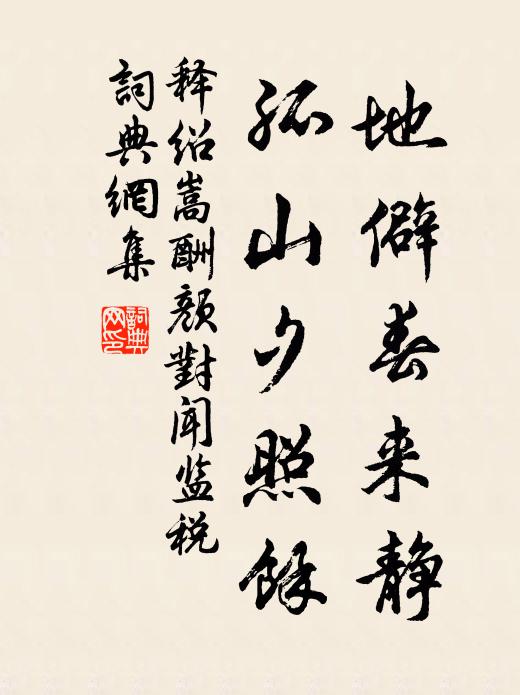 地僻春来静
孤山夕照餘
释绍嵩酬颜對闻监税
詞典網集
詞典网印